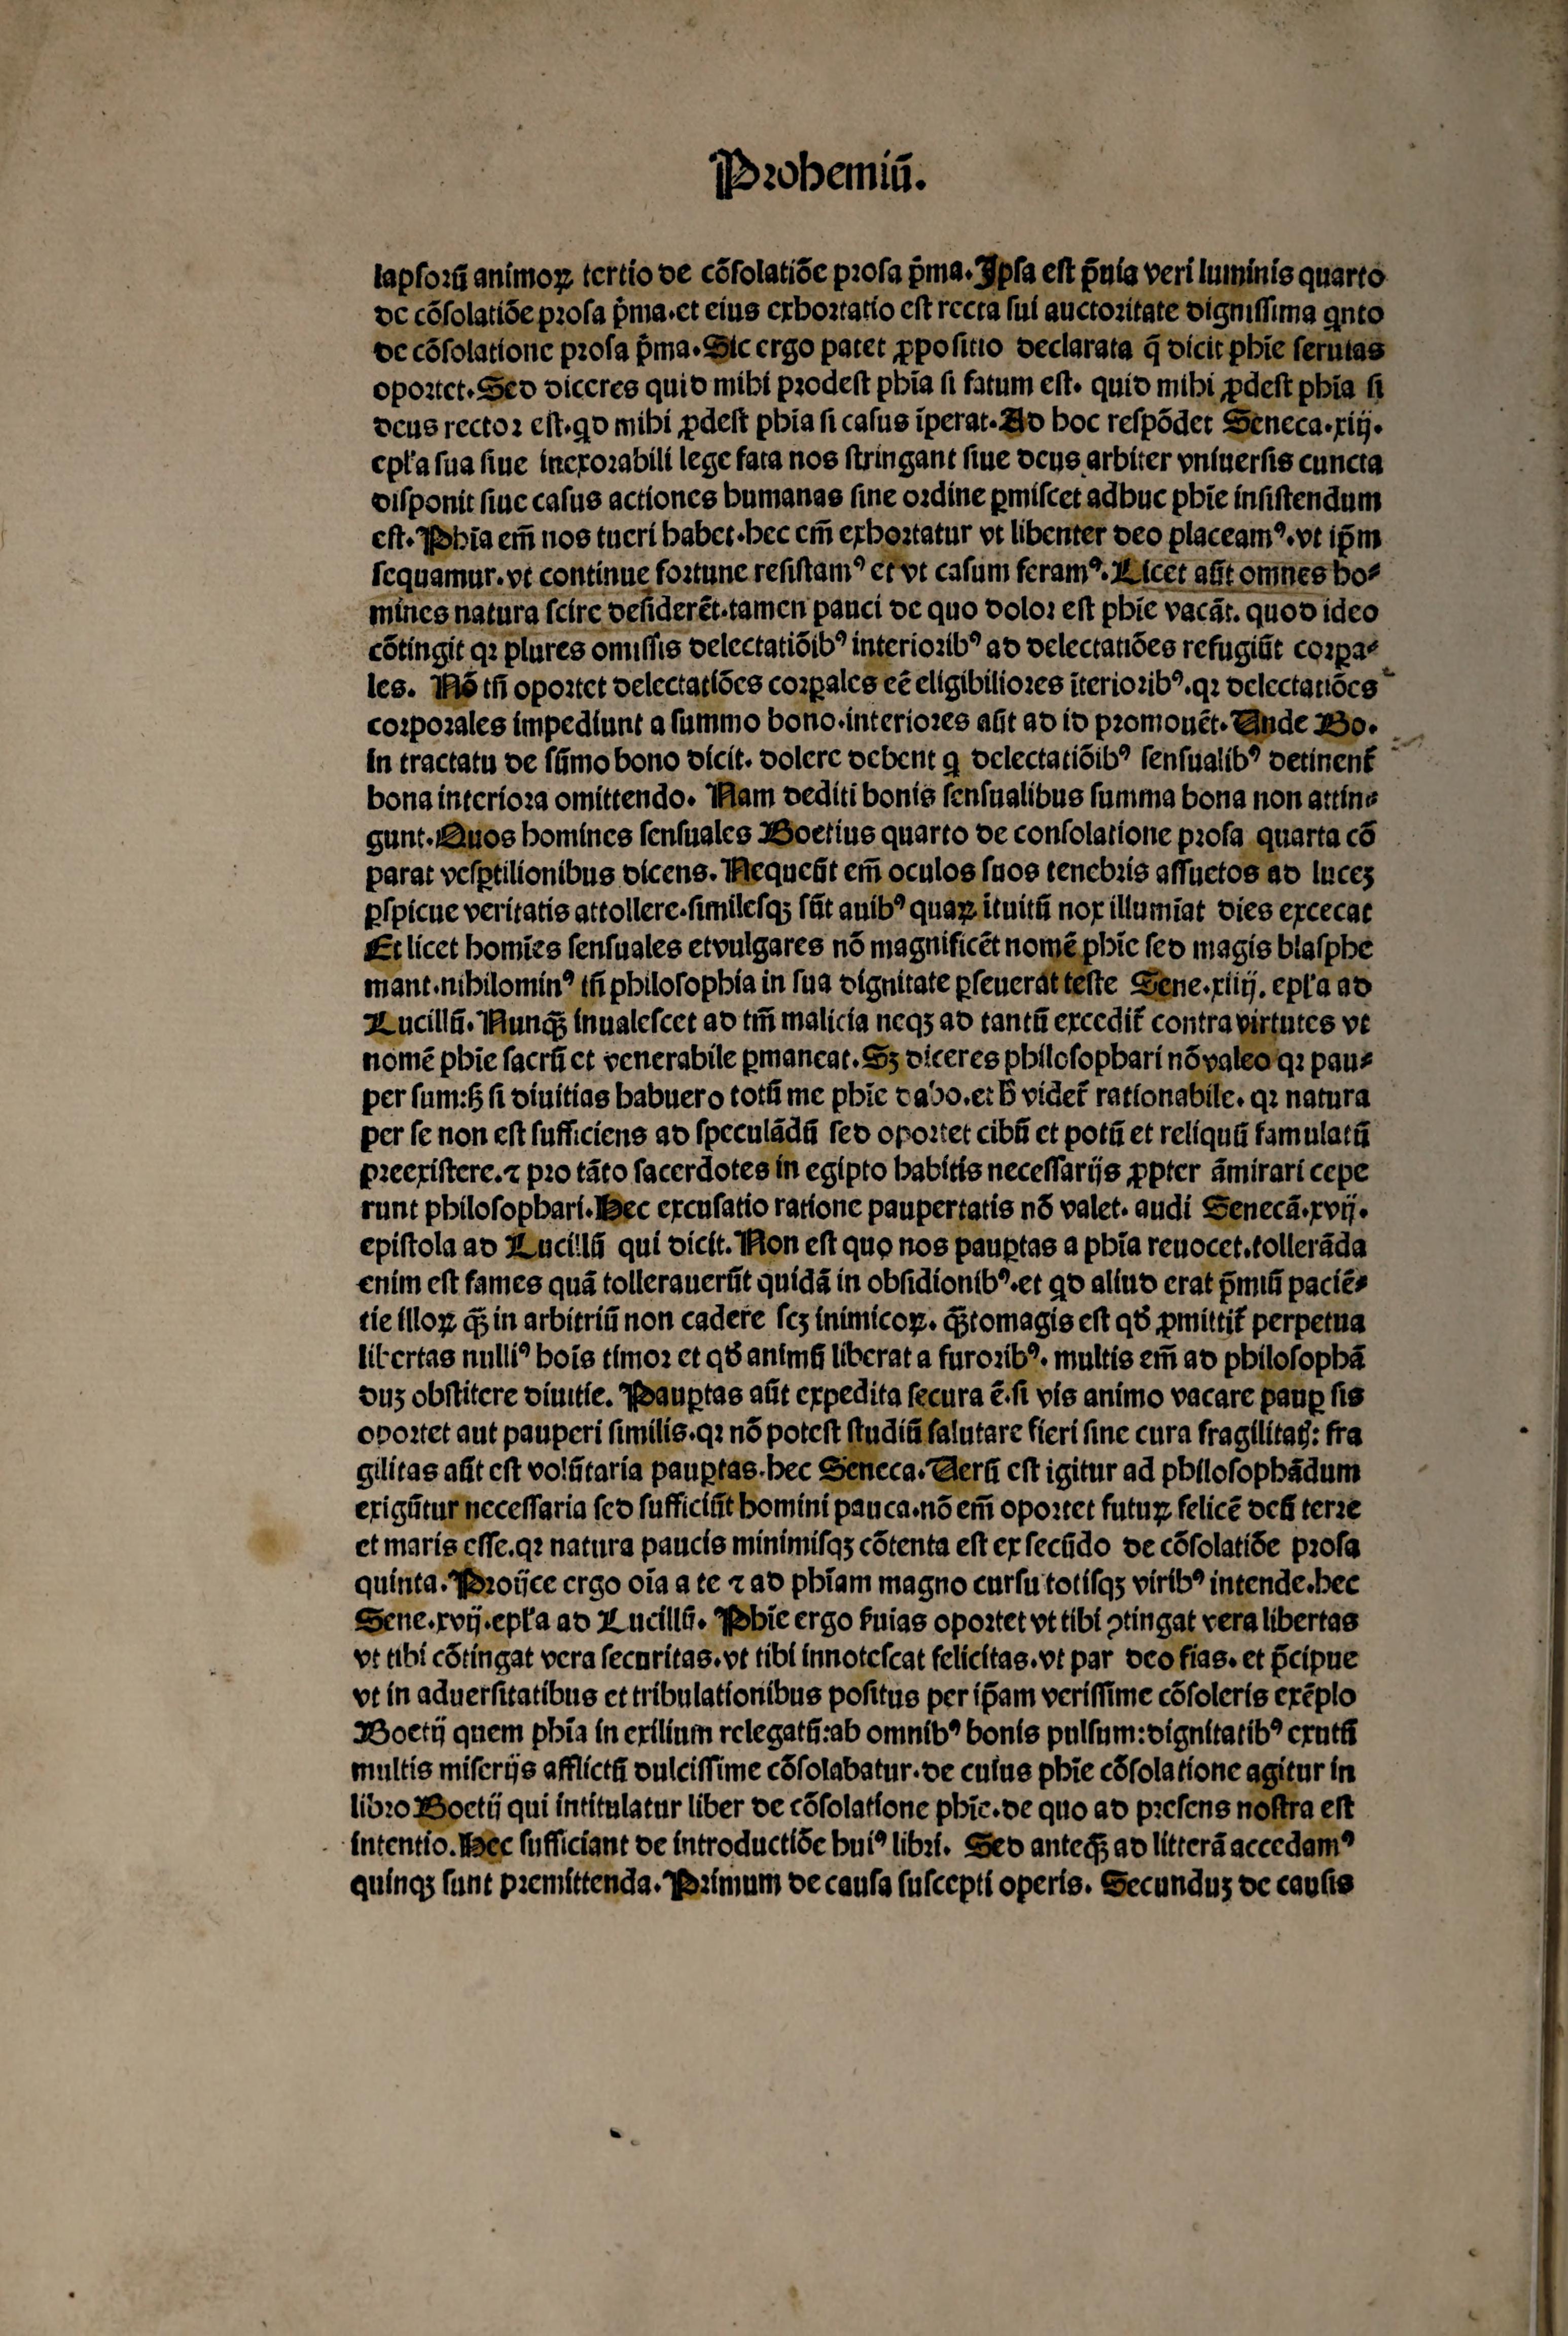 Prohemiũ.
lapsorũ animoꝝ tertio de cõsolatiõe prosa p̃ma. Ipsa est p̃uia veri luminis quarto
de cõsolatiõe prosa p̃ma. et eius exhortatio est recta sui auctoritate dignissima qnto
de cõsolatione prosa p̃ma. Sic ergo patet ꝓpositio declarata q̃ dicit phĩe seruias
oportet. Sed diceres quid mihi prodest phĩa si fatum est. quid mihi ꝓdest phĩa si
deus rector est. qd mihi ꝓdest phĩa si casus ĩperat. Ad hoc respõdet Seneca. xiij.
epľa sua siue inexorabili lege fata nos stringant siue deus arbiter vniuersis cuncta
disponit siue casus actiones humanas sine ordine ꝑmiscet adhuc phĩe insistendum
est. Phĩa em̃ nos tueri habet. hec em̃ exhortatur vt libenter deo placeamꝰ. vt ip̃m
sequamur. vt continue fortune resistamꝰ et vt casum feramꝰ. Licet aũt omnes ho⸗
mines natura scire desiderẽt. tamen pauci de quo dolor est phĩe vacãt. quod ideo
cõtingit qꝛ plures omissis delectatiõibꝰ interioribꝰ ad delectatiões refugiũt corꝑa⸗
les. Nõ tñ oportet delectatiões corꝑales eẽ eligibiliores ĩterioribꝰ. qꝛ delectatiões
corporales impediunt a summo bono. interiores aũt ad id promouẽt. Unde Bo.
in tractatu de sũmo bono dicit. dolere debent q delectatiõibꝰ sensualibꝰ detinent̃
bona interiora omittendo. Nam dediti bonis sensualibus summa bona non attin⸗
gunt. Quos homines sensuales Boetius quarto de consolatione prosa quarta cõ
parat vesꝑtilionibus dicens. Nequeũt em̃ oculos suos tenebris assuetos ad luceꝫ
ꝑspicue veritatis attollere. similesqꝫ sũt auibꝰ quaꝝ ĩtuitũ nox illumĩat dies excecat
Et licet homĩes sensuales etvulgares nõ magnificẽt nomẽ phĩe sed magis blasphe
mant. nihilominꝰ tñ philosophia in sua dignitate ꝑseuerat teste Sene. xiiij. epľa ad
Lucillũ. Nunqꝫ̃ inualescet ad tm̃ malicia neqꝫ ad tantũ excedit̃ contra virtutes vt
nomẽ phĩe sacrũ et venerabile ꝑmaneat. Sꝫ diceres philosophari nõ valeo qꝛ pau⸗
per sum: sꝫ si diuitias habuero totũ me phĩe dabo. et h̃ videt̃ rationabile. qꝛ natura
per se non est sufficiens ad speculãdũ sed oportet cibũ et potũ et reliquũ famulatũ
preexistere. ⁊ pro tãto sacerdotes in egipto habitis necessarijs ꝓpter ãmirari cepe
runt philosophari. Hec excusatio ratione paupertatis nõ valet. audi Senecã. xvij.
epistola ad Lucillũ qui dicit. Non est quo nos pauꝑtas a phĩa reuocet. tollerãda
enim est fames quã tollerauerũt quidã in obsidionibꝰ. et qd aliud erat p̃miũ paciẽ⸗
tie illoꝝ qꝫ̃ in arbitriũ non cadere scꝫ inimicoꝝ. qꝫ̃tomagis est qđ ꝓmittit̃ perpetua
libertas nulliꝰ hoĩs timor et qđ animũ liberat a furoribꝰ. multis em̃ ad philosophã
duꝫ obstitere diuitie. Pauꝑtas aũt expedita secura ẽ. si vis animo vacare pauꝑ sis
oportet aut pauperi similis. qꝛ nõ potest studiũ salutare fieri sine cura fragilitatꝭ: fra
gilitas aũt est volũtaria pauꝑtas. hec Seneca. Uerũ est igitur ad philosophãdum
exigũtur necessaria sed sufficiũt homini pauca. nõ em̃ oportet futuꝝ felicẽ deũ terre
et maris esse. qꝛ natura paucis minimisqꝫ cõtenta est ex secũdo de cõsolatiõe prosa
quinta. Proijce ergo oĩa a te ⁊ ad phĩam magno cursu totisqꝫ viribꝰ intende. hec
Sene. xvij. epľa ad Lucillũ. Phĩe ergo s̃uias oportet vt tibi ꝯtingat vera libertas
vt tibi cõtingat vera securitas. vt tibi innotescat felicitas. vt par deo fias. et p̃cipue
vt in aduersitatibus et tribulationibus positus per ip̃am verissime cõsoleris exẽplo
Boetij quem phĩa in exilium relegatũ: ab omnibꝰ bonis pulsum: dignitatibꝰ exutũ
multis miserijs afflictũ dulcissime cõsolabatur. de cuius phĩe cõsolatione agitur in
libro Boetij qui intitulatur liber de cõsolatione phĩe. de quo ad presens nostra est
intentio. Hec sufficiant de introductiõe huiꝰ libri. Sed anteqꝫ̃ ad litterã accedamꝰ
quinqꝫ sunt premittenda. Primum de causa suscepti operis. Secunduꝫ de causis